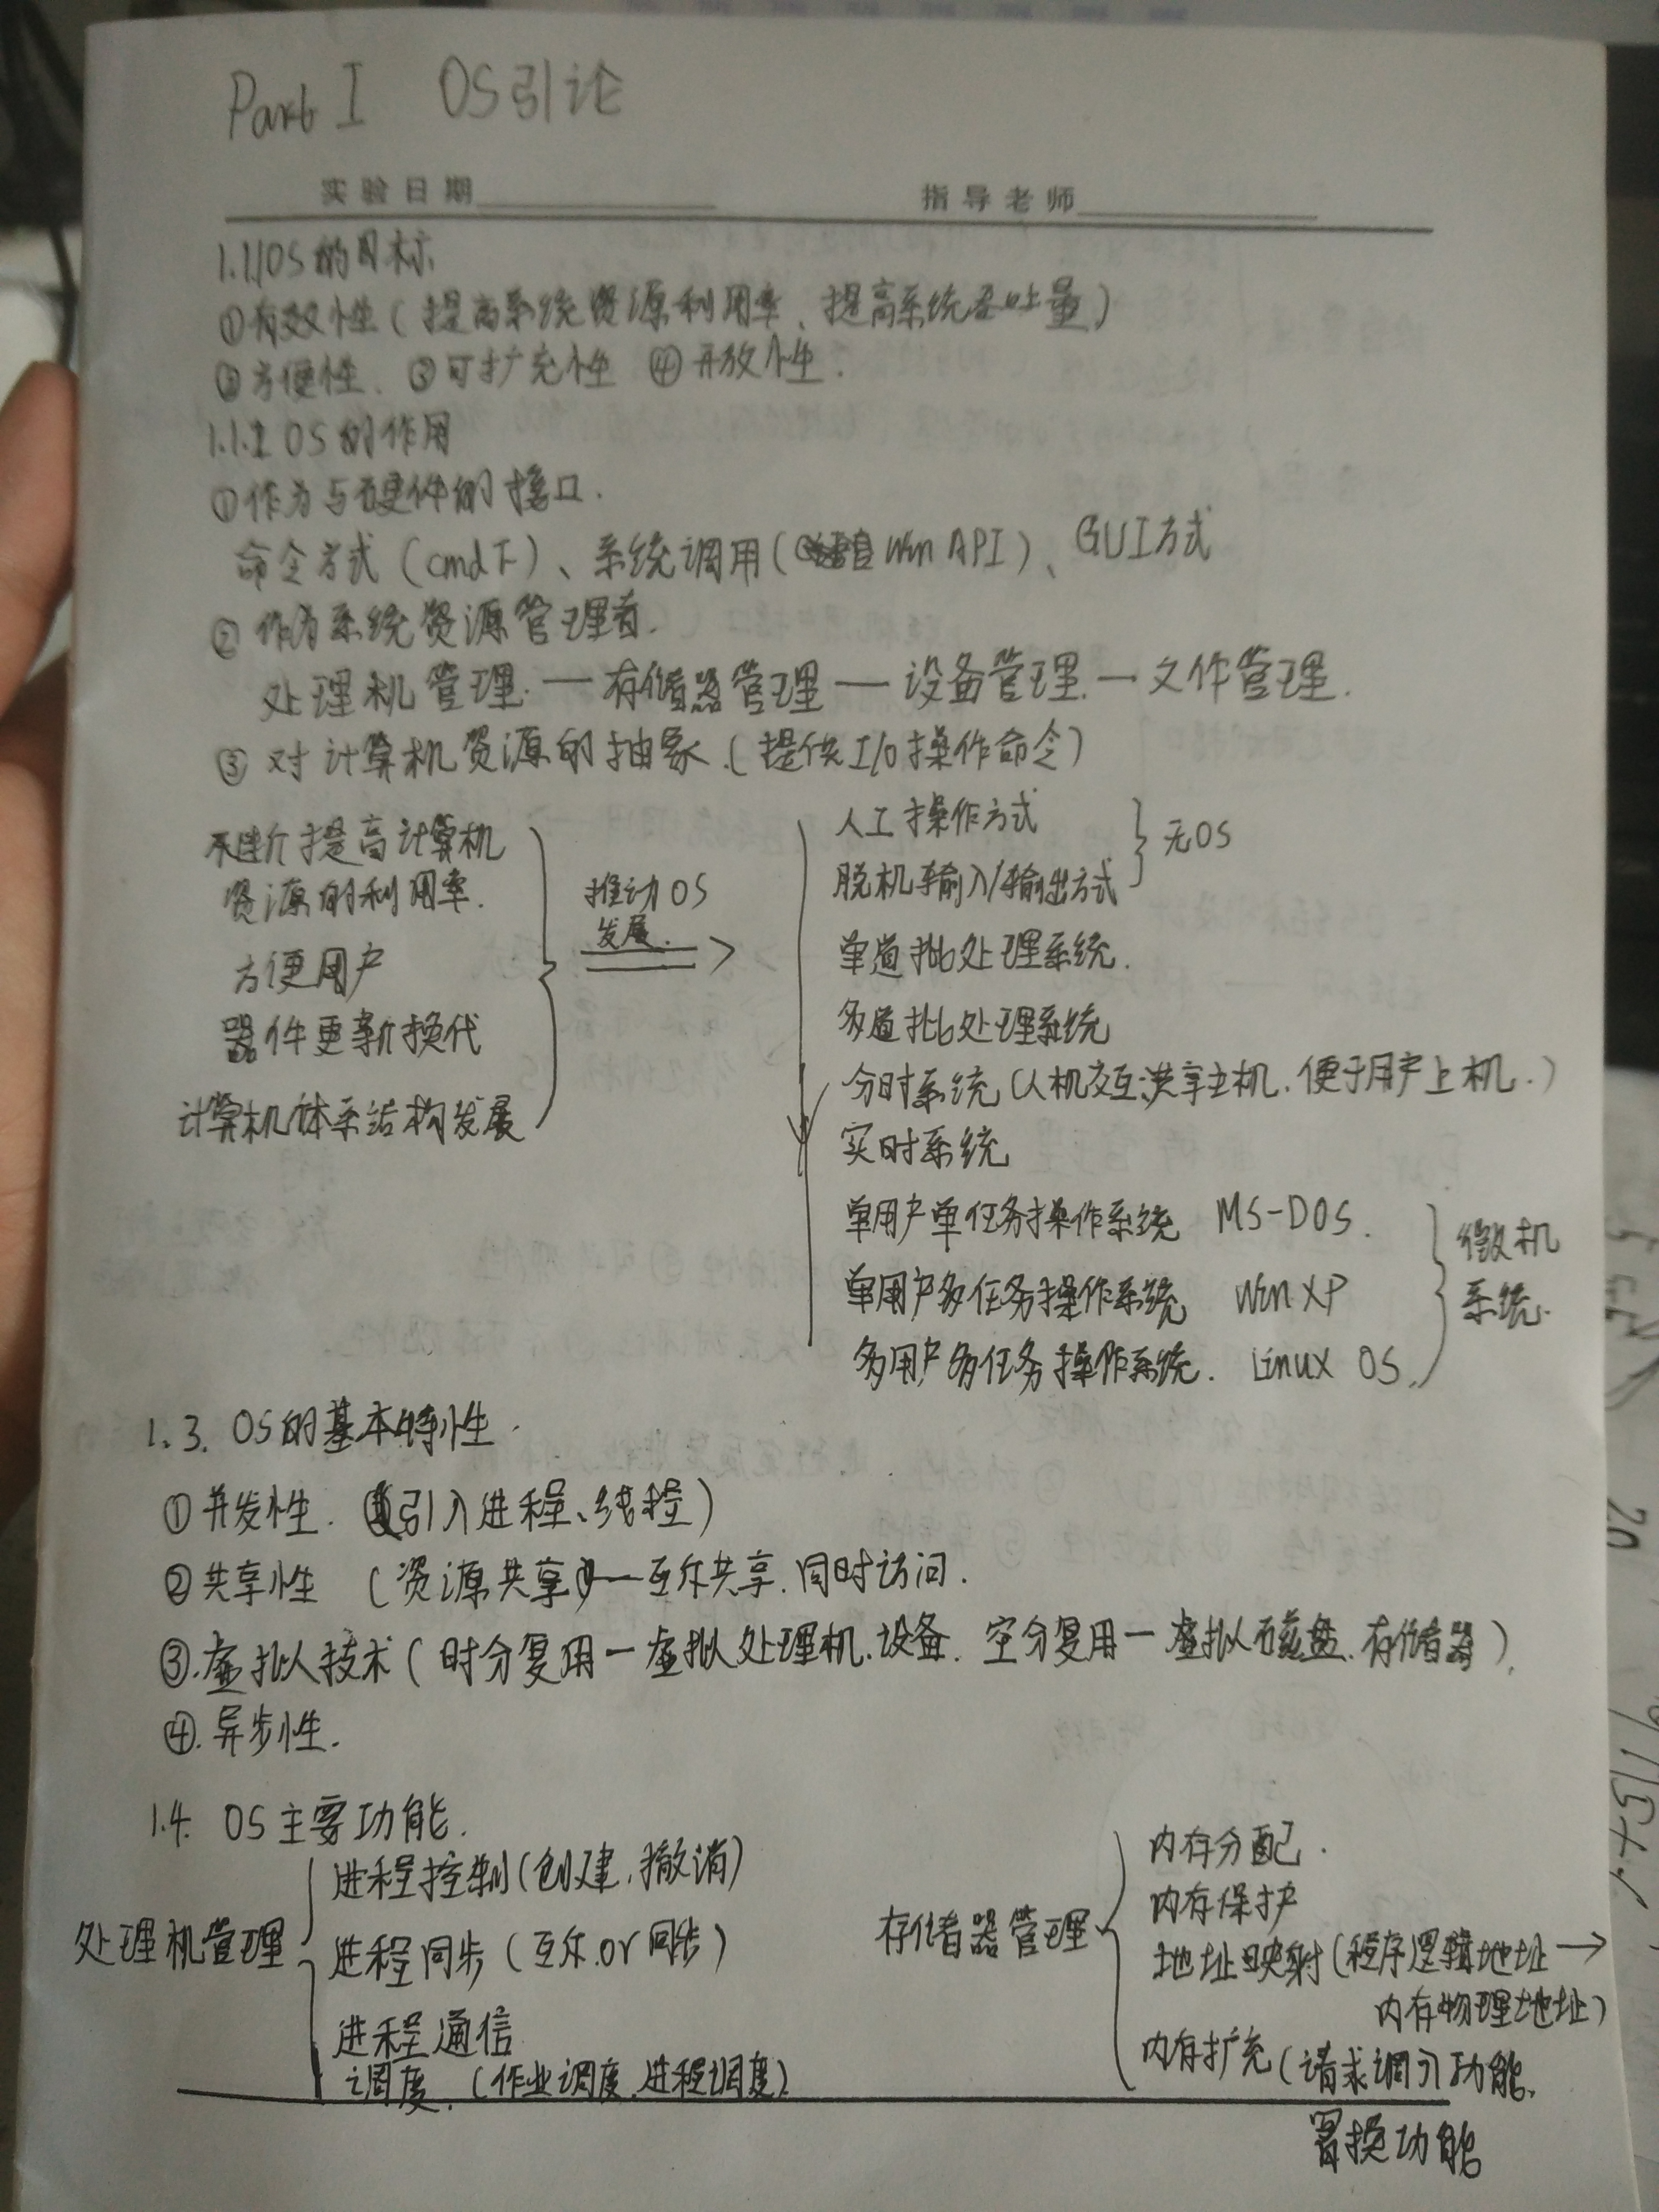 Part I OS引论
实验日期 指导老师
1.1.1 OS的目标
①有效性(提高系统资源利用率、提高系统吞吐量)
②方便性. ③可扩充性 ④开放性.
1.1.2 OS的作用
①作为与硬件的接口.
命令方式(cmd下)、系统调用( Win API)、GUI方式
②作为系统资源管理者.
处理机管理.—存储器管理—设备管理.—文件管理.
③对计算机资源的抽象.(提供I/O操作命令)
不断提高计算机
资源的利用率.
方便用户
器件更新换代
计算机体系结构发展
推动OS
发展.
人工操作方式
脱机输入/输出方式
无OS
单道批处理系统.
多道批处理系统
分时系统(人机交互.共享主机.便于用户上机.)
实时系统
单用户单任务操作系统 MS-DOS.
单用户多任务操作系统 Win XP
多用户多任务操作系统. Linux OS.
微机
系统.
1.3. OS的基本特性.
①并发性. (引入进程、线程)
②共享性 (资源共享)—互斥共享.同时访问.
③.虚拟技术(时分复用—虚拟处理机.设备. 空分复用—虚拟磁盘.存储器).
④.异步性.
1.4. OS主要功能.
处理机管理
进程控制(创建.撤消)
进程同步(互斥.or同步)
进程通信
调度.(作业调度.进程调度)
存储器管理
内存分配.
内存保护
地址映射(程序逻辑地址→
内存物理地址)
内存扩充(请求调入功能.
置换功能